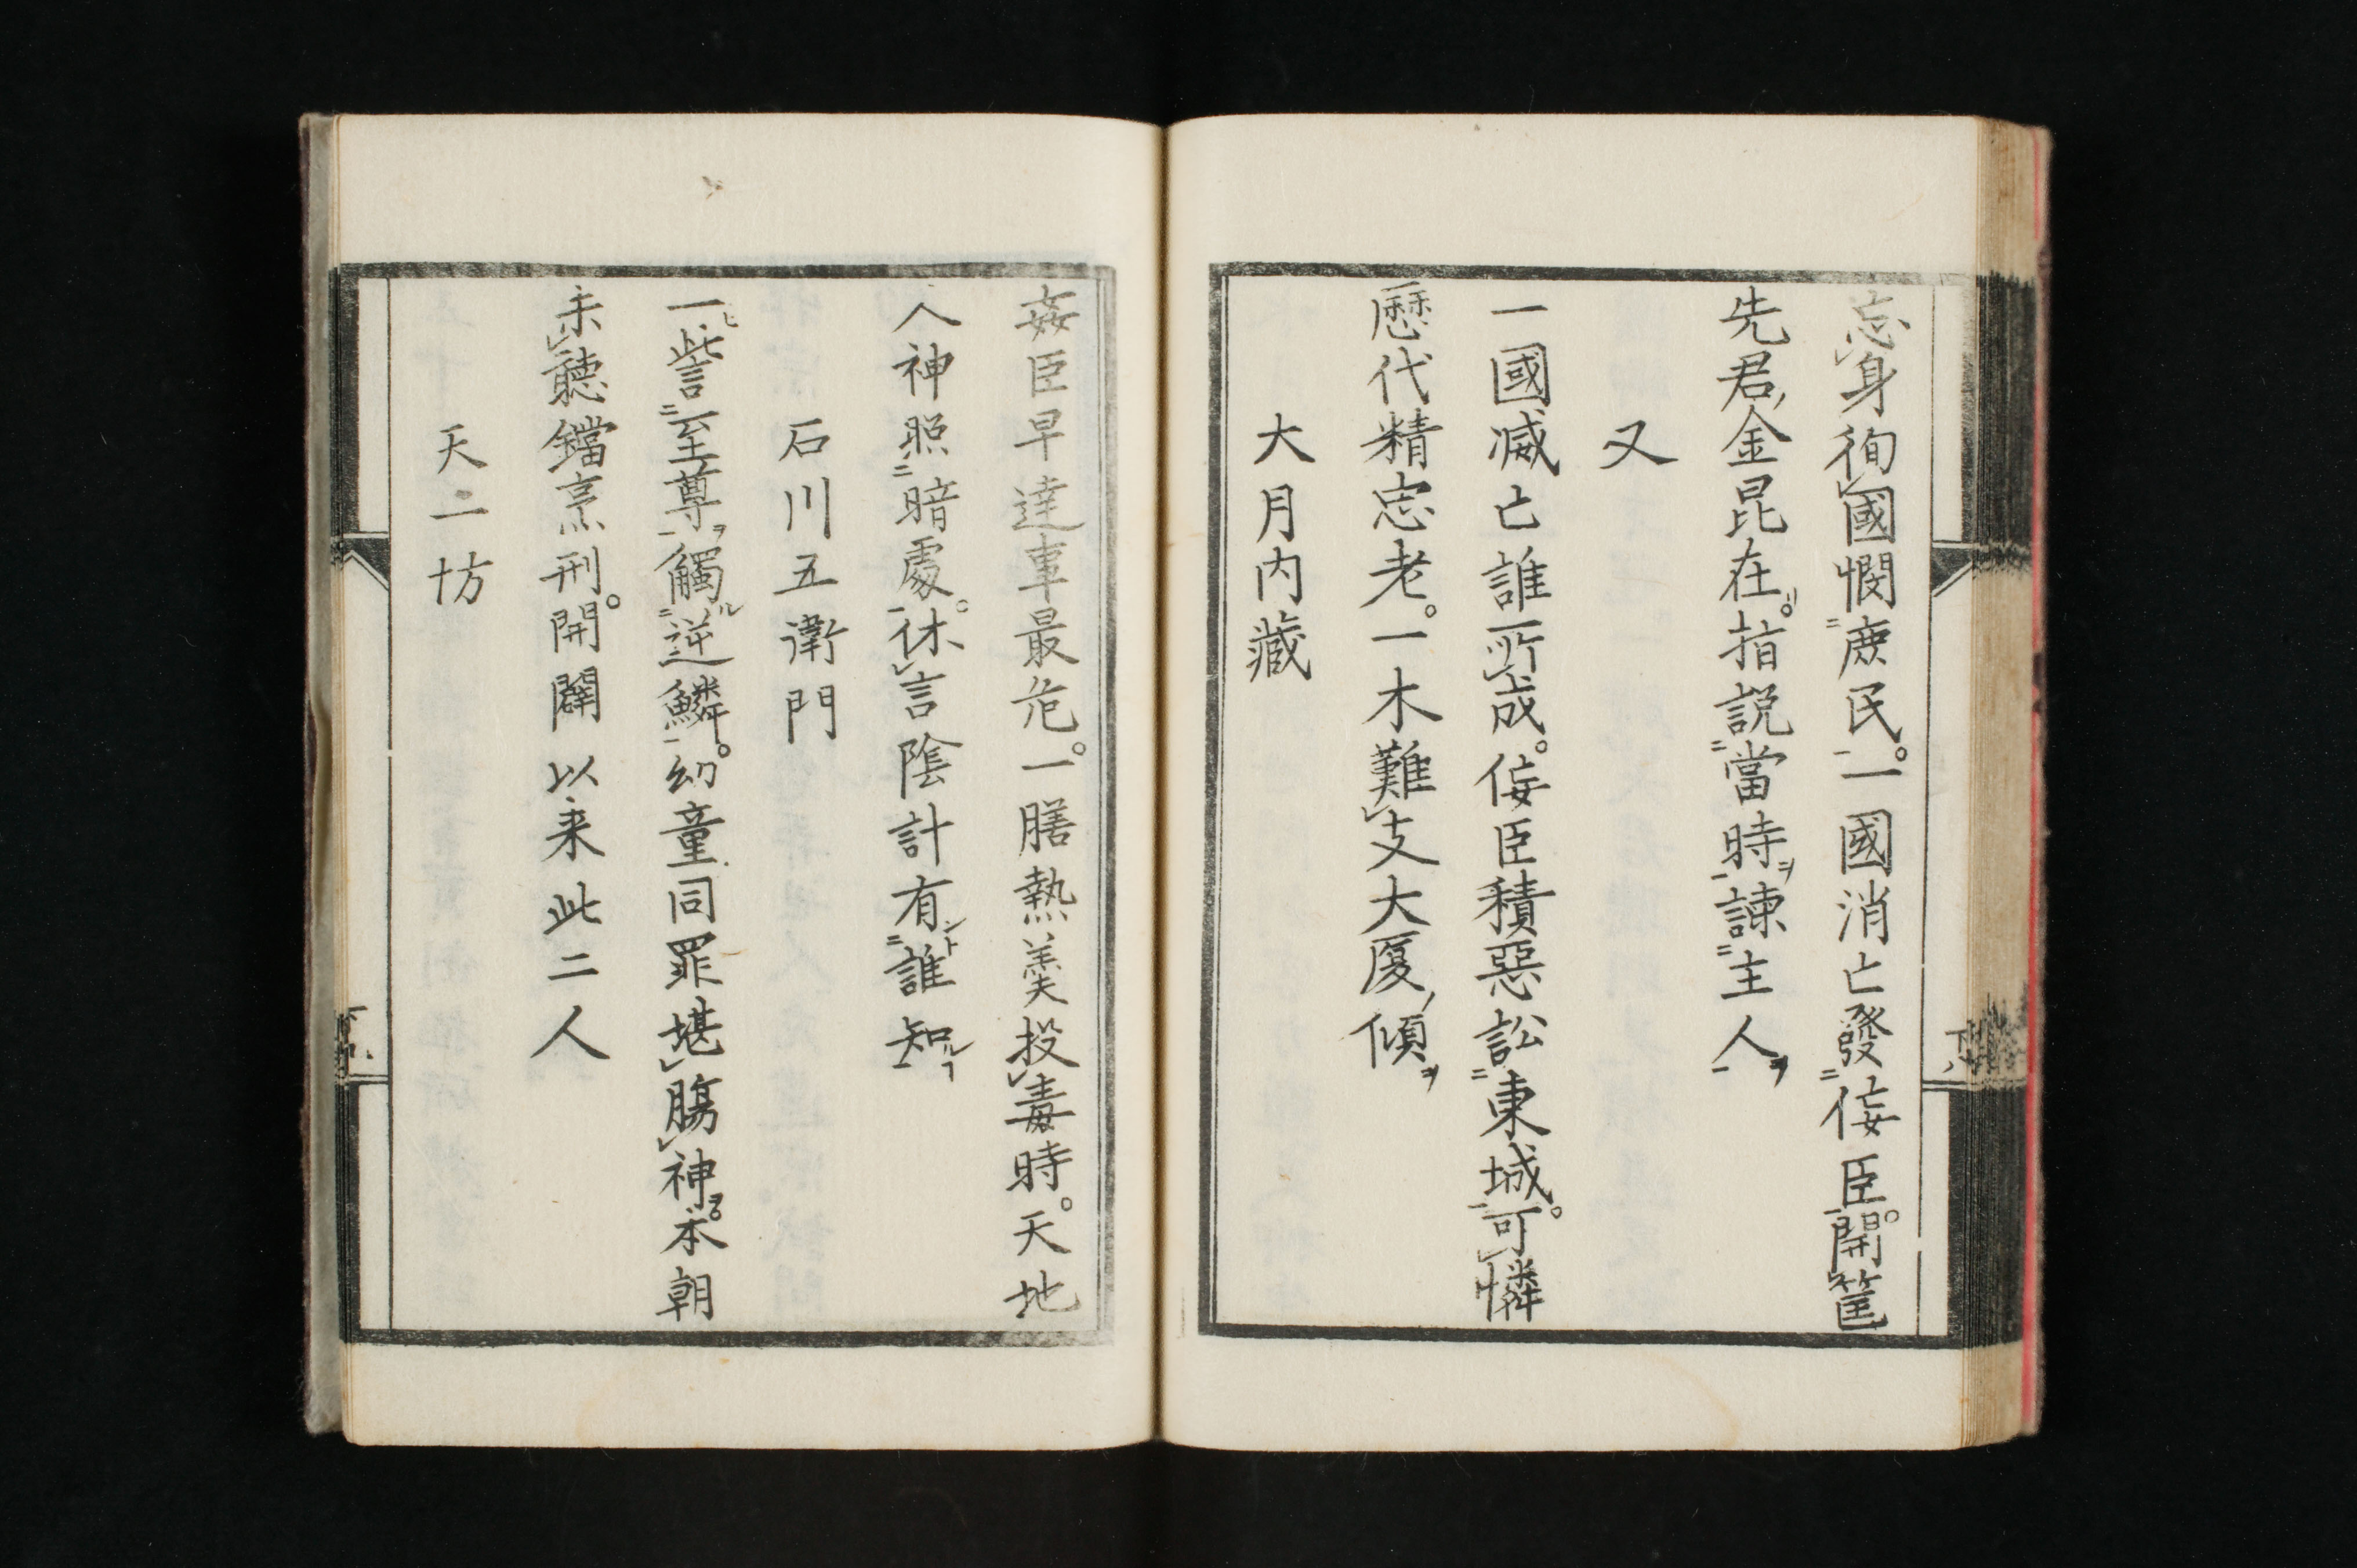 忘身徇國憫庶民。一國消亡發侫臣。開筐
先君金昆在。指說當時諫主人
又
一國滅亡誰所成。侫臣積惡訟東城。可憐
歷代精忠老。一木難支大廈傾
大月内藏
姦臣早達事最危。一膳熱羹投毒時。天地
人神照暗處。休言陰計有誰知
石川五衛門
一訾至尊觸逆鱗。幼童同罪堪膓神。本朝
未聽鐺烹刑。開闢以来此二人
天二坊